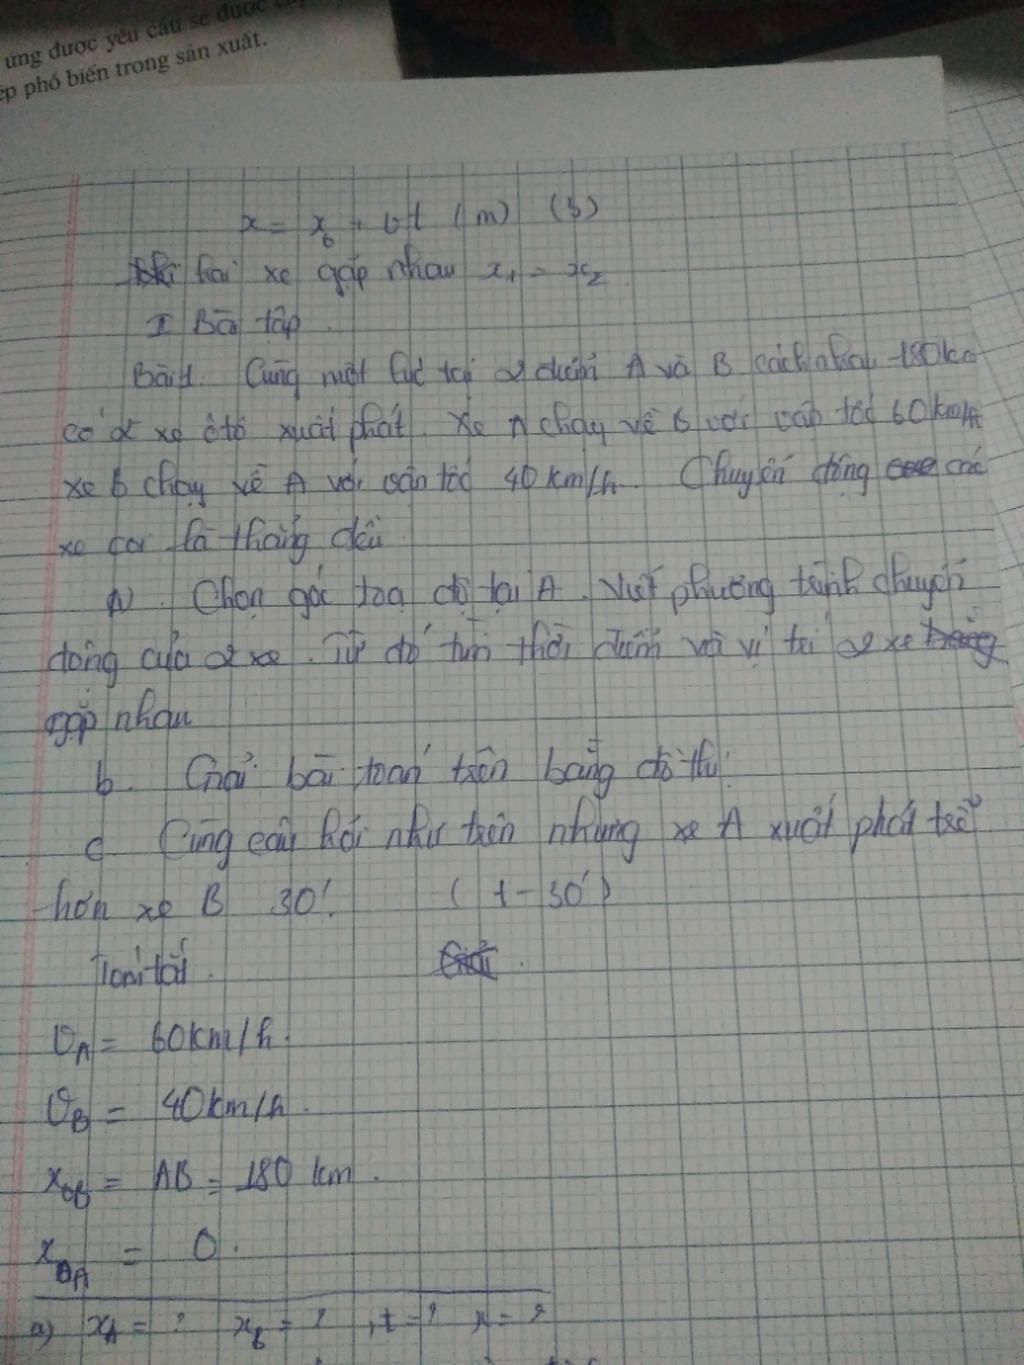 ứng được yêu cầu sẽ được
ếp phổ biến trong sản xuất.
x = x₀ + vt (m) (s)
Khi hai xe gặp nhau x₁ = x₂
I Bài tập
Bài 1. Cùng một lúc tại 2 điểm A và B cách nhau 180km
có 2 xe ôtô xuất phát. Xe A chạy về B với vận tốc 60km/h
xe B chạy về A với vận tốc 40 km/h. Chuyển động các
xe coi là thẳng đều
a. Chọn gốc toạ độ tại A. Viết phương trình chuyển
động của 2 xe. Từ đó tìm thời điểm và vị trí 2 xe
gặp nhau
b. Giải bài toán trên bằng đồ thị.
c Cũng câu hỏi như trên nhưng xe A xuất phát trễ
hơn xe B 30'. ( t - 30' )
Tóm tắt. Giải.
v_A = 60km/h.
v_B = 40km/h.
x_0B = AB = 180 km.
x_0A = 0.
a) x_A = ? x_B = ? , t = ? x = ?